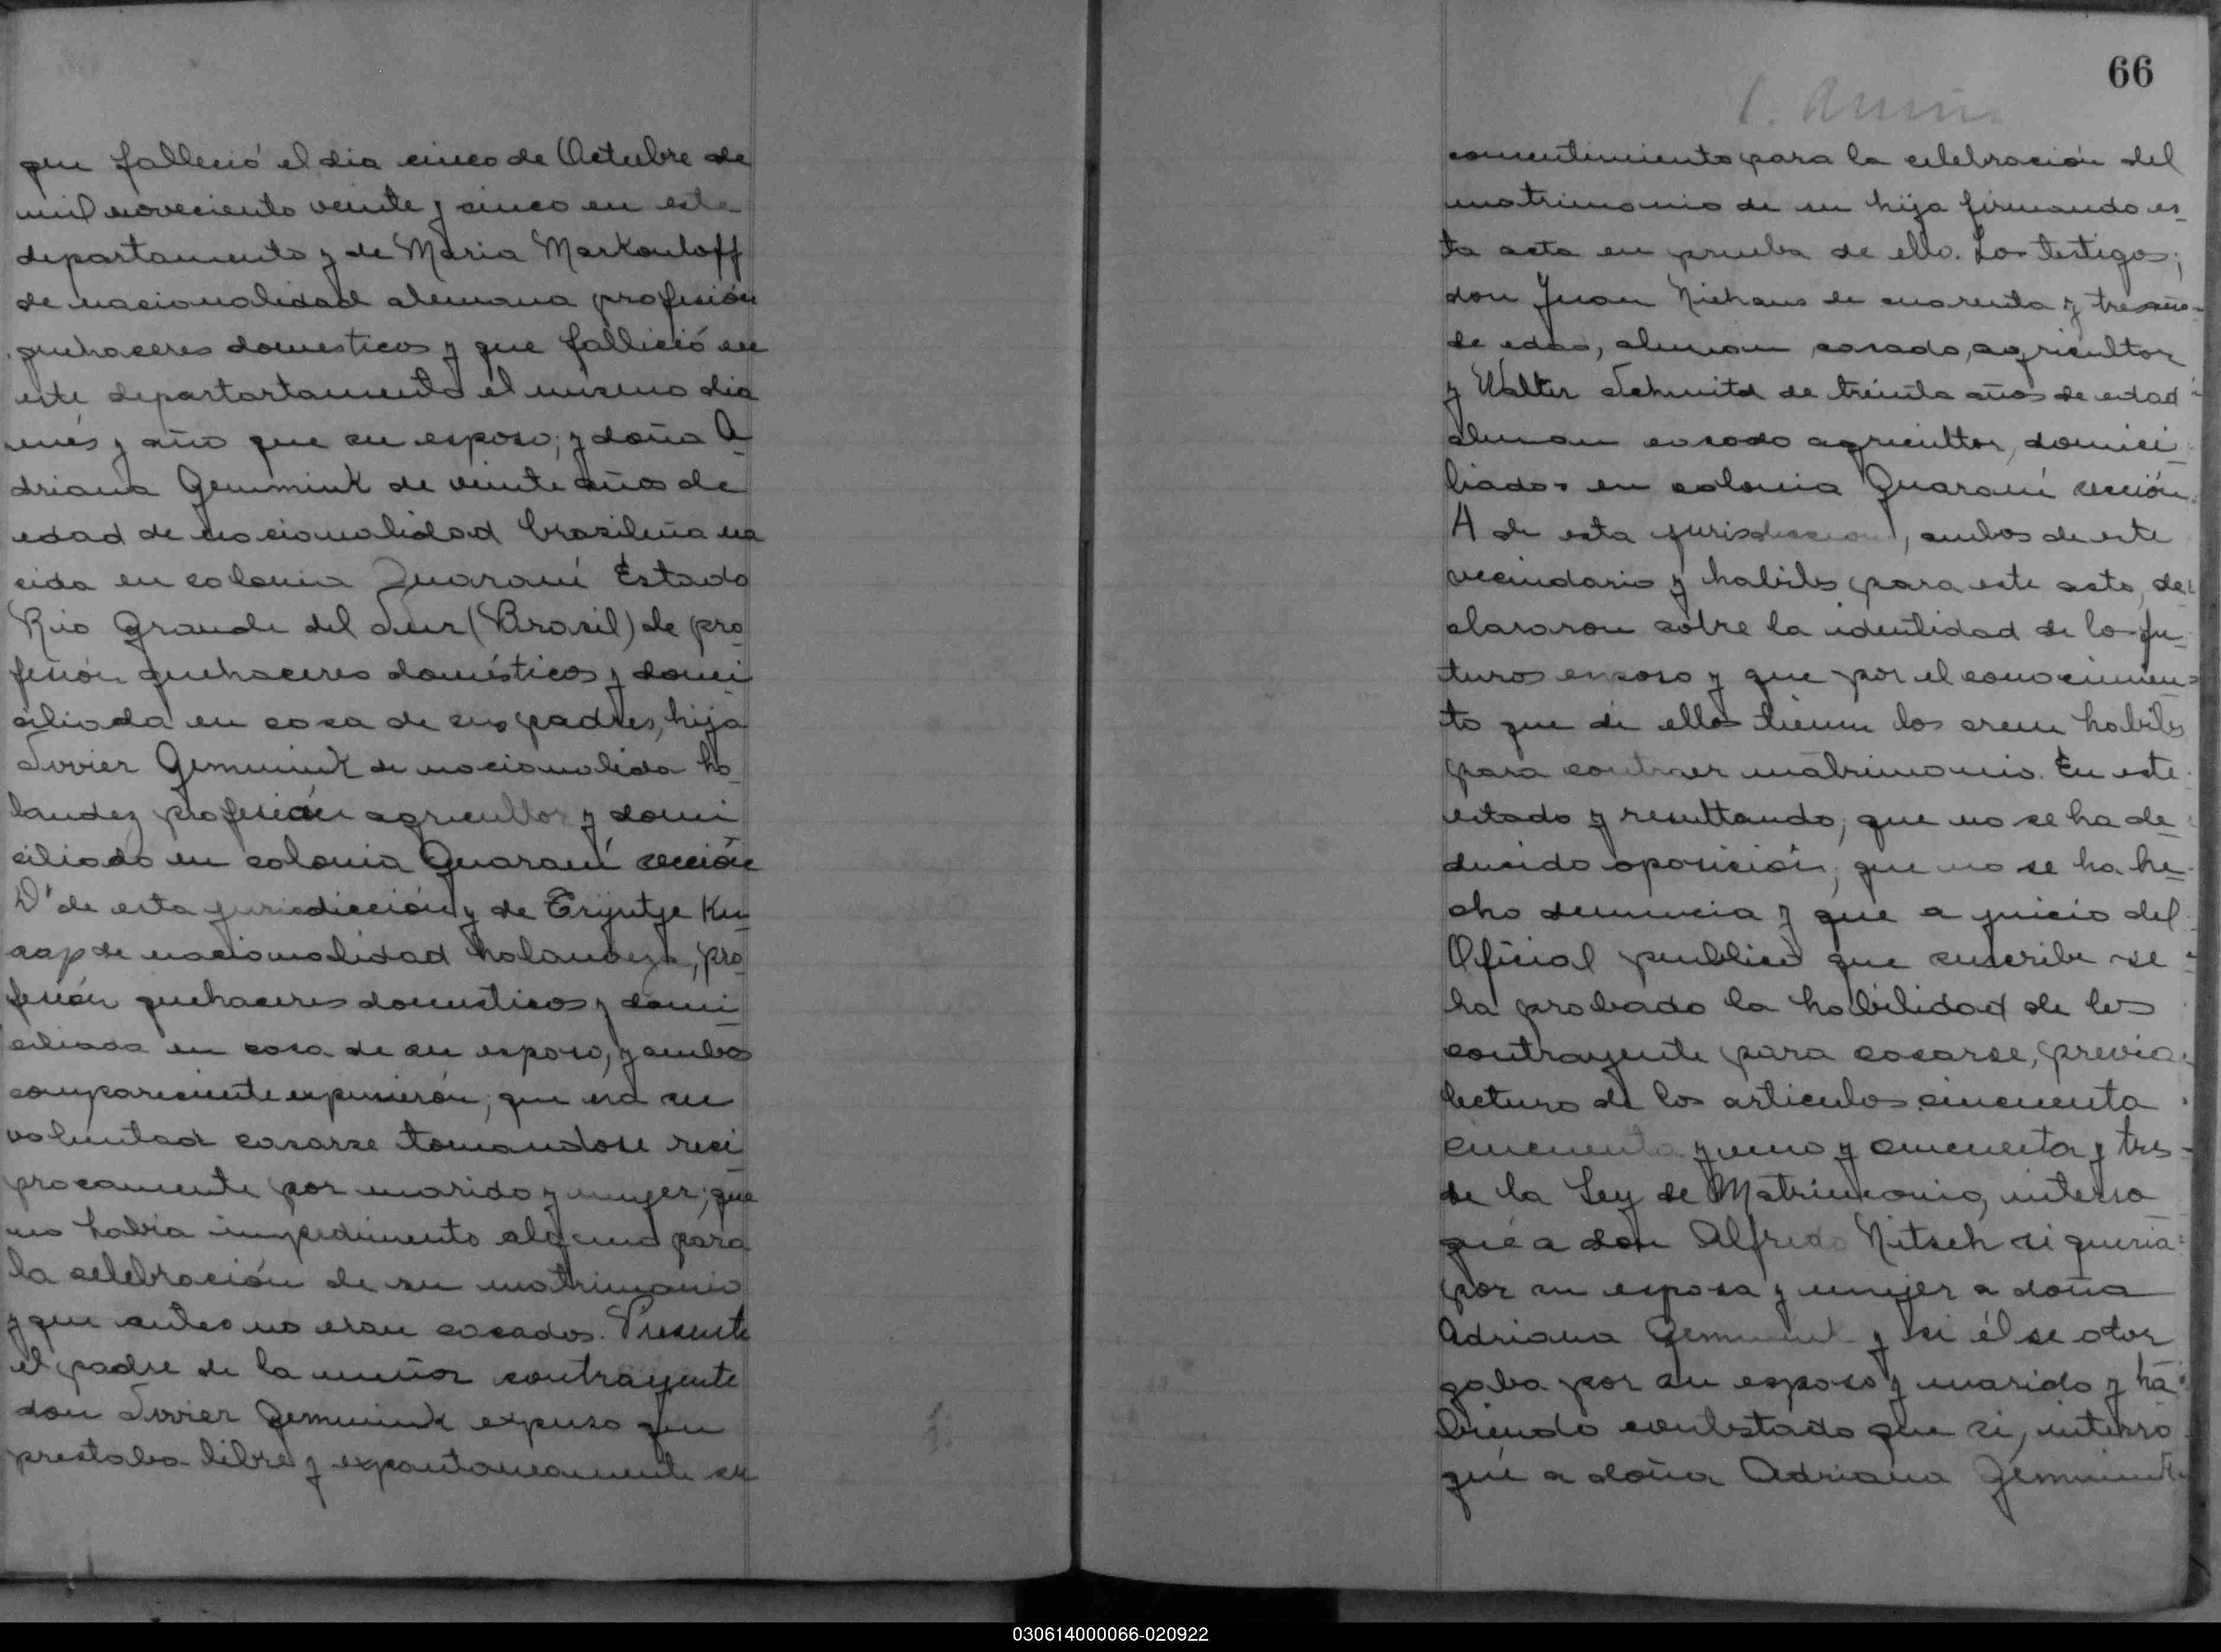 que falleció el dia cinco de Octubre de
mil noveciento veinte y cinco en este
departamento y de Maria Markouloff
de nacionalidad alemana profesión
quehaceres domesticos y que fallició en
este departartamento el mismo dia
mes y año que su esposo; y doña A
driana Gemmink de veinte años de
edad de nacionalidad brasileña na
cida en colonia Guaraní Estado
Rio Grande del Sur (Brasil) de pro
fesión quehaceres domésticos y domi
ciliada en casa de sus padres, hija
Gemmink de nacionalida ho
landez profesión agricultor y domi
ciliado en colonia Guaraní sección
D" de esta jurisdicción y de Trijntje Kn
aap de nacionalidad holandeza, pro
fesión quehaceres domesticos y domi
ciliada en casa de su esposo, y ambos
compareciente expusierón; que era su
voluntad casarse tomandose reci
procamente por marido y mujer; que
no habia impedimento alguno para
la celebración de su matrimonio
y que antes no eran casados. Presente
el padre de la menor contrayente
don Gemmink expuso que
prestaba libre y expontaneamente su
66
consentimiento para la celebración del
matrimonio de su hija firmando es
ta acta en prueba de ello. Los testigos;
don Juan Niehaus de cuarenta y tres años
de edad, aleman, casado, agricultor
y Walter Schmitd de treinta años de edad
aleman casado agricultor, domici
liados en colonia Guaraní sección
A de esta jurisdiccion, ambos de este
vecindario y habiles para este acto, de
clararon sobre la identidad de lo fu
turos esposo y que por el conocimien
to que de ellos tienen los creen habiles
para contraer matrimonio. En este
estado y resultando; que no se ha de
ducido oposición; que no se ha he
cho denuncia y que a juicio del
Oficial publico que suscribe se
ha probado la habilidad de los
contrayente para casarse, previa
lectura de los articulos cincuenta
cincuenta y uno y cincuenta y tres
de la Ley de Matrimonio, interro
gué a don Alfredo Nitsch si queria
por su esposa y mujer a doña
Adriana Gemmink y si él se otor
gaba por su esposo y marido y ha
biendo contestado que si, interro
gué a doña Adriana Gemmink